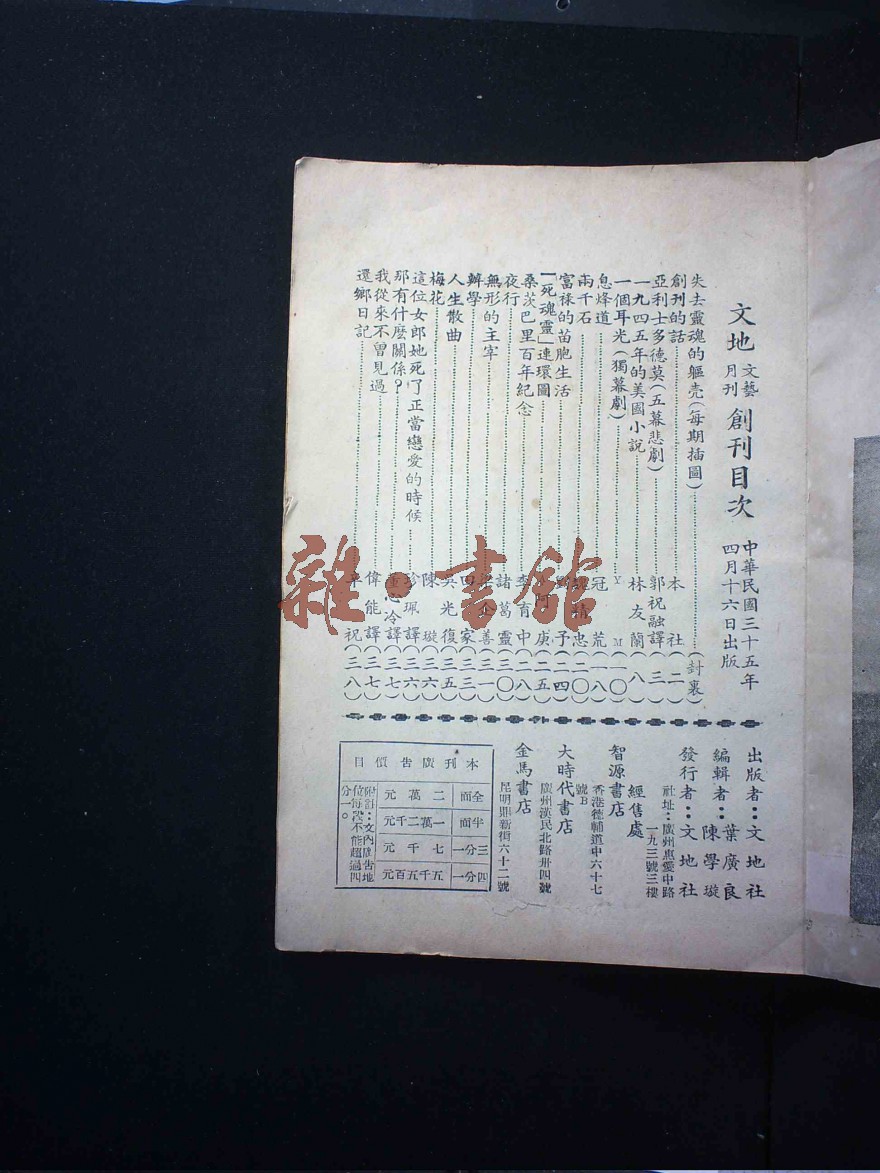 文地 文藝月刊 創刊目次 中華民國三十五年四月十六日出版
失去靈魂的軀壳(每期插圖)(封裏)
創刊的話 本社(二)
亞利士多德莫(五幕悲劇) 郭祝融譯(三)
一九四五年的美國小說 林友蘭(八)
一個耳光(獨幕劇) Y M(一〇)
息烽道 冠荒(一八)
兩千石 忠(二〇)
富祿的苗胞生活 予(二四)
「死魂靈」連環圖 庚(二五)
桑茨巴里百年紀念 李育中(二八)
夜行 諸葛靈(三〇)
無形的主宰 善(三一)
辨學 田家(三三)
人生散曲 吳光復(三五)
梅花 陳璇(三六)
這位女郎她死了正當戀愛的時候 珍珮譯(三六)
那有什麼關係? 董心冷譯(三七)
我從來不曾見過 偉能譯(三七)
還鄉日記 祝(三八)
出版者：文地社
編輯者：葉廣良 陳學璇
發行者：文地社
社址：廣州惠愛中路一九三號三樓
經售處
智源書店
香港德輔道中六十七號B
大時代書店
廣州漢民北路卅四號
金馬書店
昆明鼎新街六十二號
本刊廣告價目
全面 二萬元
半面 一萬二千元
三分一 七千元
四分一 五千五百元
附註：文內廣告地位每段不能超過四分一。
雜·書館